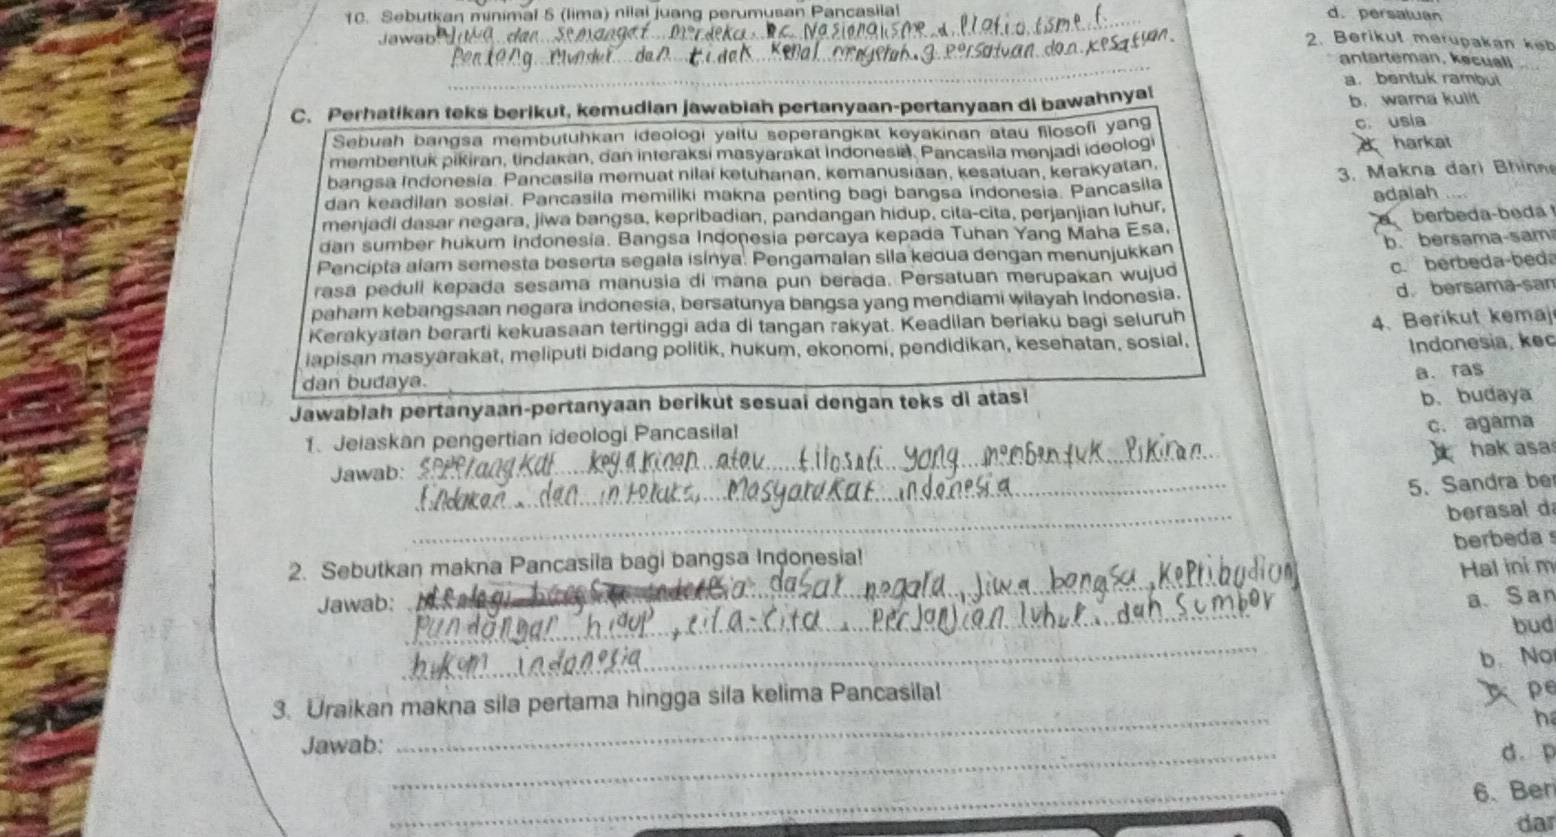 10. Sebutkan minimal 5 (lima) nilai juang perumusan Pancasila!
Jawab: dan semangat merdeka.
pantang mundur dan tidak kenal g. persatuan dan kesatuan.
C. Perhatikan teks berikut, kemudian jawablah pertanyaan-pertanyaan di bawahnya!
Sebuah bangsa membutuhkan ideologi yaitu seperangkat keyakinan atau filosofi yang
membentuk pikiran, tindakan, dan interaksi masyarakat Indonesia. Pancasila menjadi ideologi
bangsa Indonesia. Pancasila memuat nilai ketuhanan, kemanusiaan, kesatuan, kerakyatan,
dan keadilan sosial. Pancasila memiliki makna penting bagi bangsa Indonesia. Pancasila
menjadi dasar negara, jiwa bangsa, kepribadian, pandangan hidup, cita-cita, perjanjian luhur,
dan sumber hukum Indonesia. Bangsa Indonesia percaya kepada Tuhan Yang Maha Esa,
Pencipta alam semesta beserta segala isinya. Pengamalan sila kedua dengan menunjukkan
rasa peduli kepada sesama manusia di mana pun berada. Persatuan merupakan wujud
paham kebangsaan negara Indonesia, bersatunya bangsa yang mendiami wilayah Indonesia.
Kerakyatan berarti kekuasaan tertinggi ada di tangan rakyat. Keadilan berlaku bagi seluruh
lapisan masyarakat, meliputi bidang politik, hukum, ekonomi, pendidikan, kesehatan, sosial,
dan budaya.
Jawablah pertanyaan-pertanyaan berikut sesuai dengan teks di atas!
1. Jelaskan pengertian ideologi Pancasila!
Jawab: seperangkat keyakinan atau filosofi yang membentuk Pikiran
tindakan, dan masyarakat indonesia
2. Sebutkan makna Pancasila bagi bangsa Indonesia!
Jawab: dasar negara, jiwa bangsa, kepribudion
pundangan hidup, cita-cita, perjanjian luhur, dan sumber
hukum indonesia
3. Uraikan makna sila pertama hingga sila kelima Pancasila!
Jawab:
d. persatuan
2. Berikut merupakan keb
antarteman, kecuali ....
a. bentuk rambut
b. warna kulit
c. usia
harkat
3. Makna dari Bhinne
adalah ....
berbeda-beda t
b. bersama-sama
c. berbeda-beda
d. bersama-sam
4. Berikut kemaj
Indonesia, kec
a. ras
b. budaya
c. agama
hak asas
5. Sandra ber
berasal da
berbeda s
Hal ini m
a. San
bud
b. No
pe
ha
d. p
6. Ber
dar